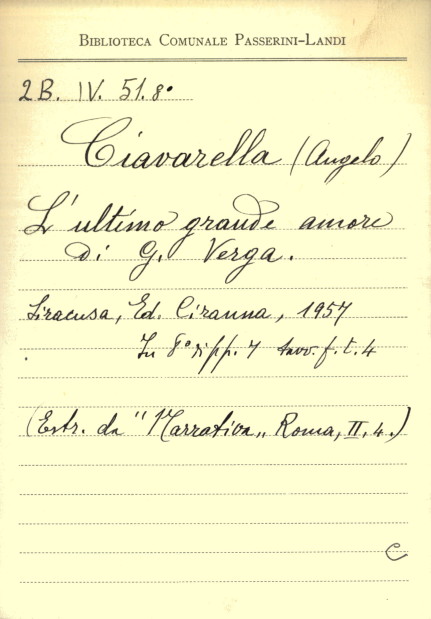 BIBLIOTECA COMUNALE PASSERINI-LANDI
2B. IV. 51.8º
Ciavarella (Angelo)
L'ultimo grande amore
di G. Verga.
Siracusa, Ed. Ciranna, 1957
In 8° di pp. 7 tavv. f. t. 4
(Estr. da "Narrativa„ Roma, II, 4.)
C